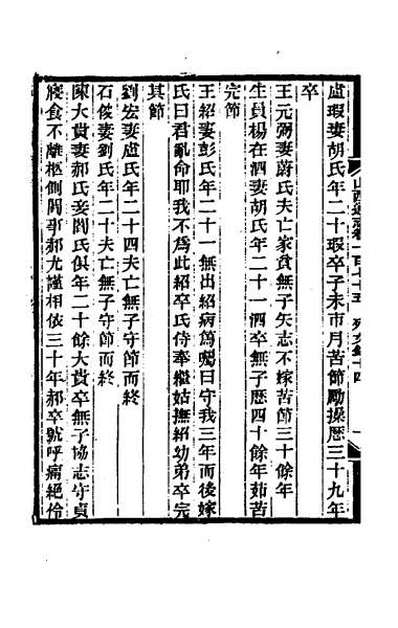 盧瑕妻胡氏年二十瑕卒子未帀月苦節勵操歴三十九年
卒
王元弼妻蔚氏夫亡家貧無子矢志不嫁苦節三十餘年
生員楊在泗妻胡氏年二十一泗卒無子歴四十餘年茹苦
完節
王紹妻彭氏年二十一無出紹病篤囑曰守我三年而後嫁
氏曰君亂命耶我不爲此紹卒氏侍奉繼姑撫紹幼弟卒完
其節
劉宏妻盧氏年二十四夫亡無子守節而終
石俊妻劉氏年二十夫亡無子守節而終
陳大貴妻郝氏妾閻氏俱年二十餘大貴卒無子協志守貞
寢食不離柩側閻事郝尤謹相依三十年郝卒號呼痛絶伶
山西通志卷一百七十五 列女錄十四 一